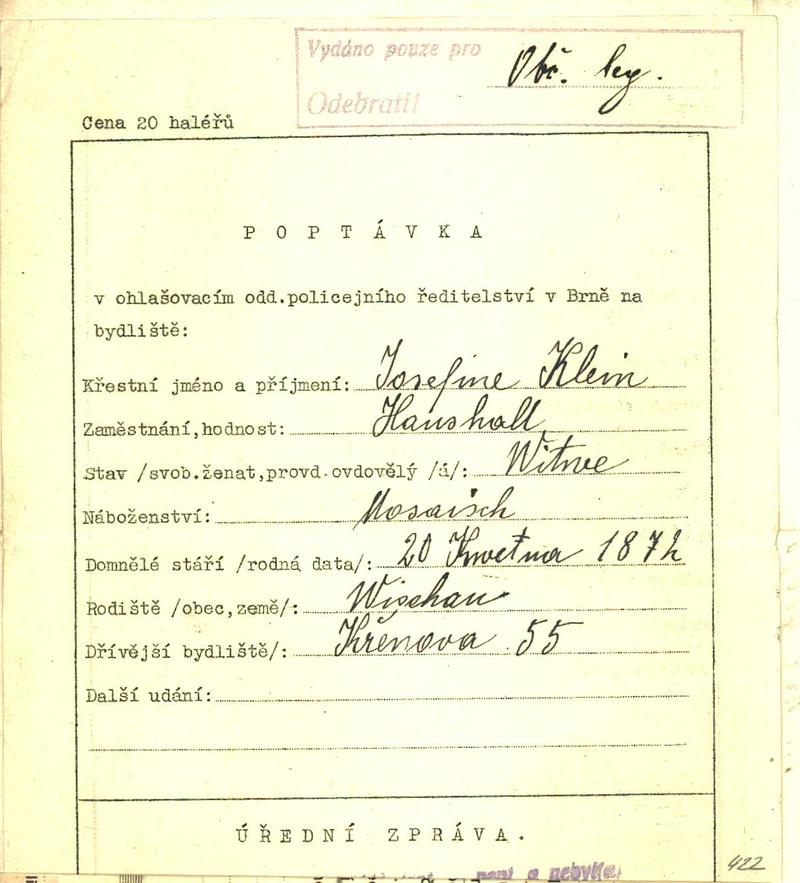 Vydáno pouze pro Obč. leg.
Odebrati!
Cena 20 haléřů
POPTÁVKA
v ohlašovacím odd.policejního ředitelství v Brně na
bydliště:
Křestní jméno a příjmení: Josefine Klein
Zaměstnání,hodnost: Haushalt
Stav /svob.ženat,provd.ovdovělý /á/: Witwe
Náboženství: Mosaisch
Domnělé stáří /rodná data/: 20 Kwetna 1872
Rodiště /obec,země/: Wischau
Dřívější bydliště/: Křenova 55
Další udání:
ÚŘEDNÍ ZPRÁVA.
422
není a nebyl